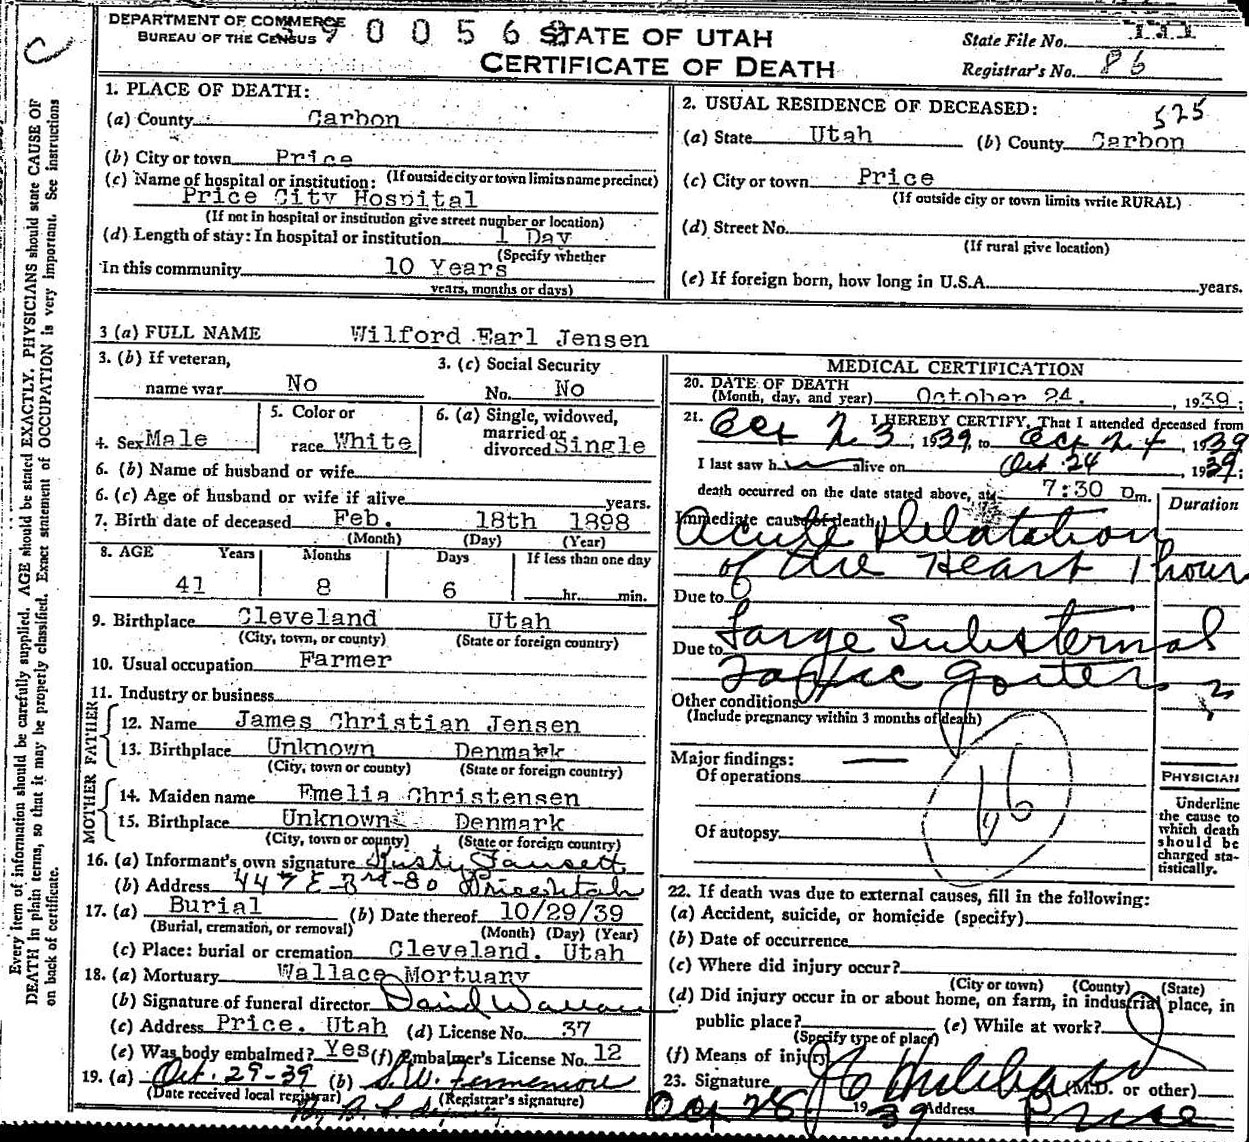 C
DEPARTMENT OF COMMERCE
BUREAU OF THE CENSUS
390056
STATE OF UTAH
CERTIFICATE OF DEATH
State File No.
Registrar's No. 86
Every item of information should be carefully supplied. AGE should be stated EXACTLY. PHYSICIANS should state CAUSE OF
DEATH in plain terms, so that it may be properly classified. Exact statement of OCCUPATION is very important. See instructions
on back of certificate.
1. PLACE OF DEATH:
(a) County Carbon
(b) City or town Price
(If outside city or town limits name precinct)
(c) Name of hospital or institution:
Price City Hospital
(If not in hospital or institution give street number or location)
(d) Length of stay: In hospital or institution 1 Day
(Specify whether
In this community 10 Years
years, months or days)
2. USUAL RESIDENCE OF DECEASED:
525
(a) State Utah (b) County Carbon
(c) City or town Price
(If outside city or town limits write RURAL)
(d) Street No.
(If rural give location)
(e) If foreign born, how long in U.S.A. years.
3 (a) FULL NAME Wilford Earl Jensen
3. (b) If veteran,
name war No
3. (c) Social Security
No. No
4. Sex Male
5. Color or
race White
6. (a) Single, widowed,
married or
divorced Single
6. (b) Name of husband or wife
6. (c) Age of husband or wife if alive years.
7. Birth date of deceased Feb. 18th 1898
(Month) (Day) (Year)
8. AGE Years Months Days If less than one day
41 8 6 hr. min.
9. Birthplace Cleveland Utah
(City, town, or county) (State or foreign country)
10. Usual occupation Farmer
11. Industry or business
FATHER
12. Name James Christian Jensen
13. Birthplace Unknown Denmark
(City, town or county) (State or foreign country)
MOTHER
14. Maiden name Emelia Christensen
15. Birthplace Unknown Denmark
(City, town or county) (State or foreign country)
16. (a) Informant's own signature Fausett
(b) Address 447 E 3rd So Price Utah
17. (a) Burial (b) Date thereof 10/29/39
(Burial, cremation, or removal) (Month) (Day) (Year)
(c) Place: burial or cremation Cleveland. Utah
18. (a) Mortuary Wallace Mortuary
(b) Signature of funeral director David Wallace
(c) Address Price. Utah (d) License No. 37
(e) Was body embalmed? Yes (f) Embalmer's License No. 12
19. (a) Oct. 29-39 (b) S.W.
(Date received local registrar) (Registrar's signature)
MEDICAL CERTIFICATION
20. DATE OF DEATH
(Month, day, and year) October 24. , 1939;
21. I HEREBY CERTIFY, That I attended deceased from
Oct 23, 1939, to Oct 24, 1939
I last saw h alive on Oct 24 1939;
death occurred on the date stated above, at 7:30 pm.
Duration
Immediate cause of death
Acute Dilatation
of the Heart 1 hour
Due to
Large Substernal
Due to
Toxic goiter
Other conditions
(Include pregnancy within 3 months of death)
Major findings:
Of operations
Of autopsy
PHYSICIAN
Underline
the cause to
which death
should be
charged sta-
tistically.
22. If death was due to external causes, fill in the following:
(a) Accident, suicide, or homicide (specify)
(b) Date of occurrence
(c) Where did injury occur?
(City or town) (County) (State)
(d) Did injury occur in or about home, on farm, in industrial place, in
public place? (e) While at work?
(Specify type of place)
(f) Means of injury
23. Signature (M.D. or other)
Oct 28 1939 Address Price